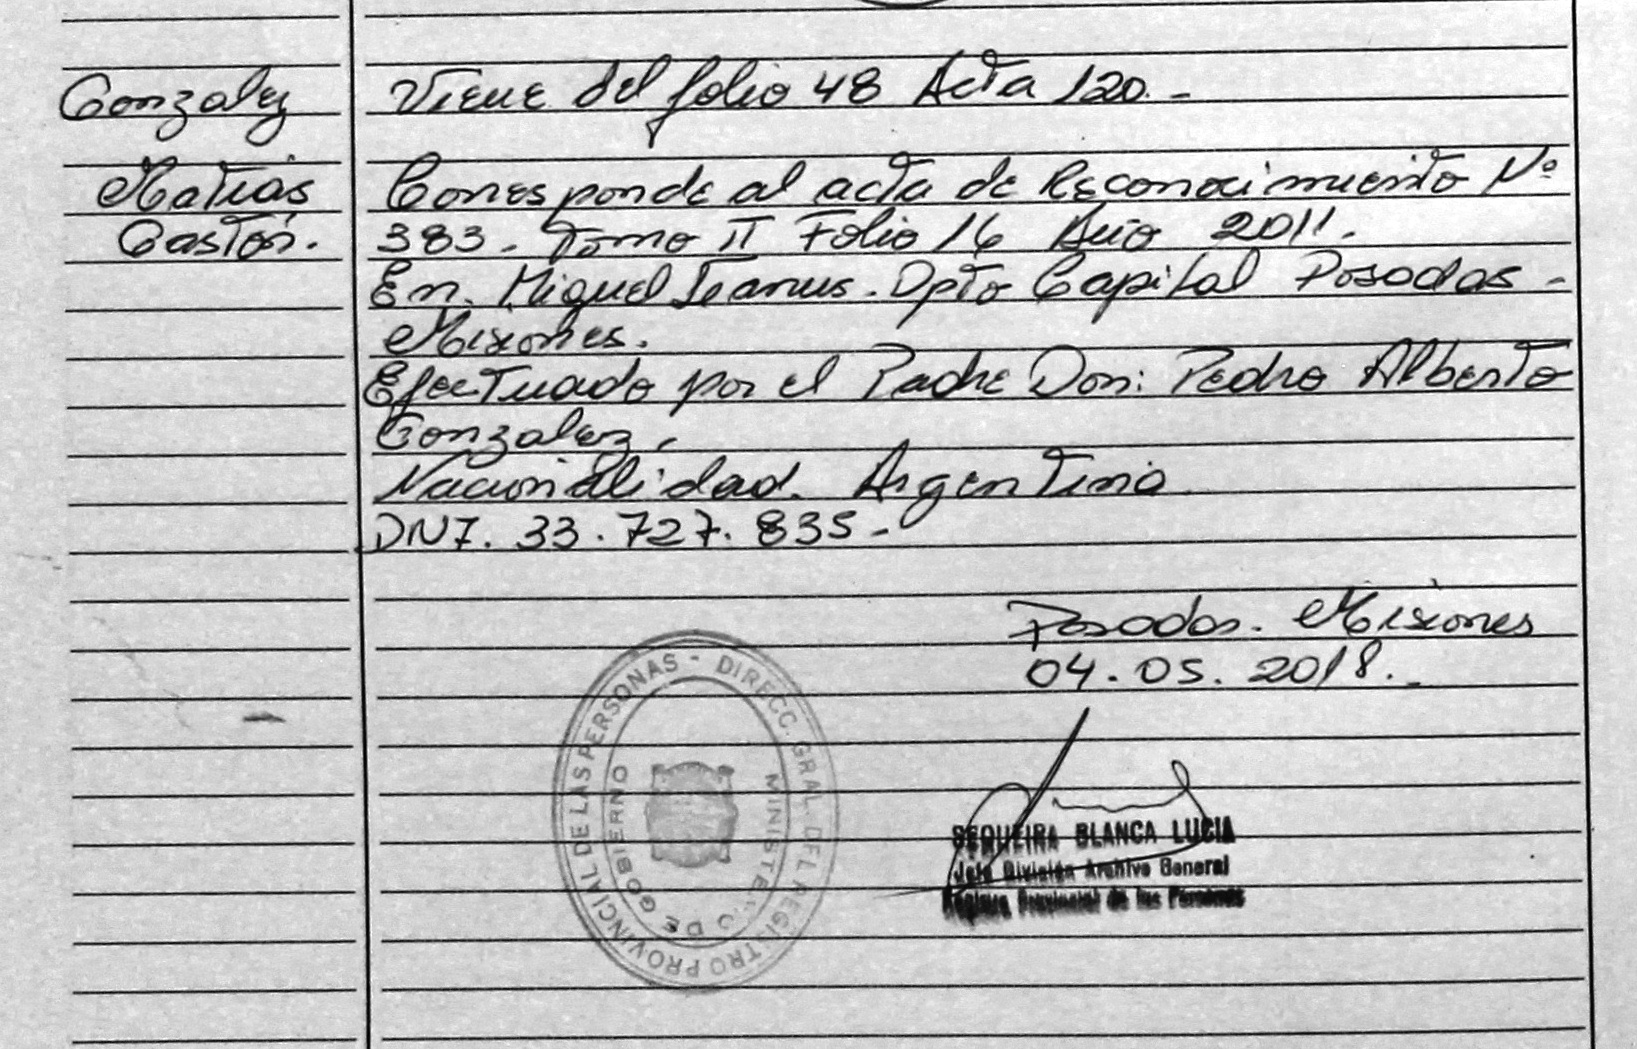 Gonzalez
Matias
Gastón.
Viene del folio 48 Acta 120.-
Corresponde al acta de Reconocimiento Nº
383. Tomo II Folio 16 Año 2011.
En. Miguel Lanus. Dpto Capital Posadas -
Misiones.
Efectuado por el Padre Don: Pedro Alberto
Gonzalez.
Nacionalidad. Argentina
DNI. 33.727.835-
Posadas. Misiones
04.05.2018.-
DIRECC. GRAL. DEL REGISTRO PROVINCIAL DE LAS PERSONAS -
MINISTERIO DE GOBIERNO
SEQUEIRA BLANCA LUCIA
Jefa División Archivo General
Registro Provincial de las Personas